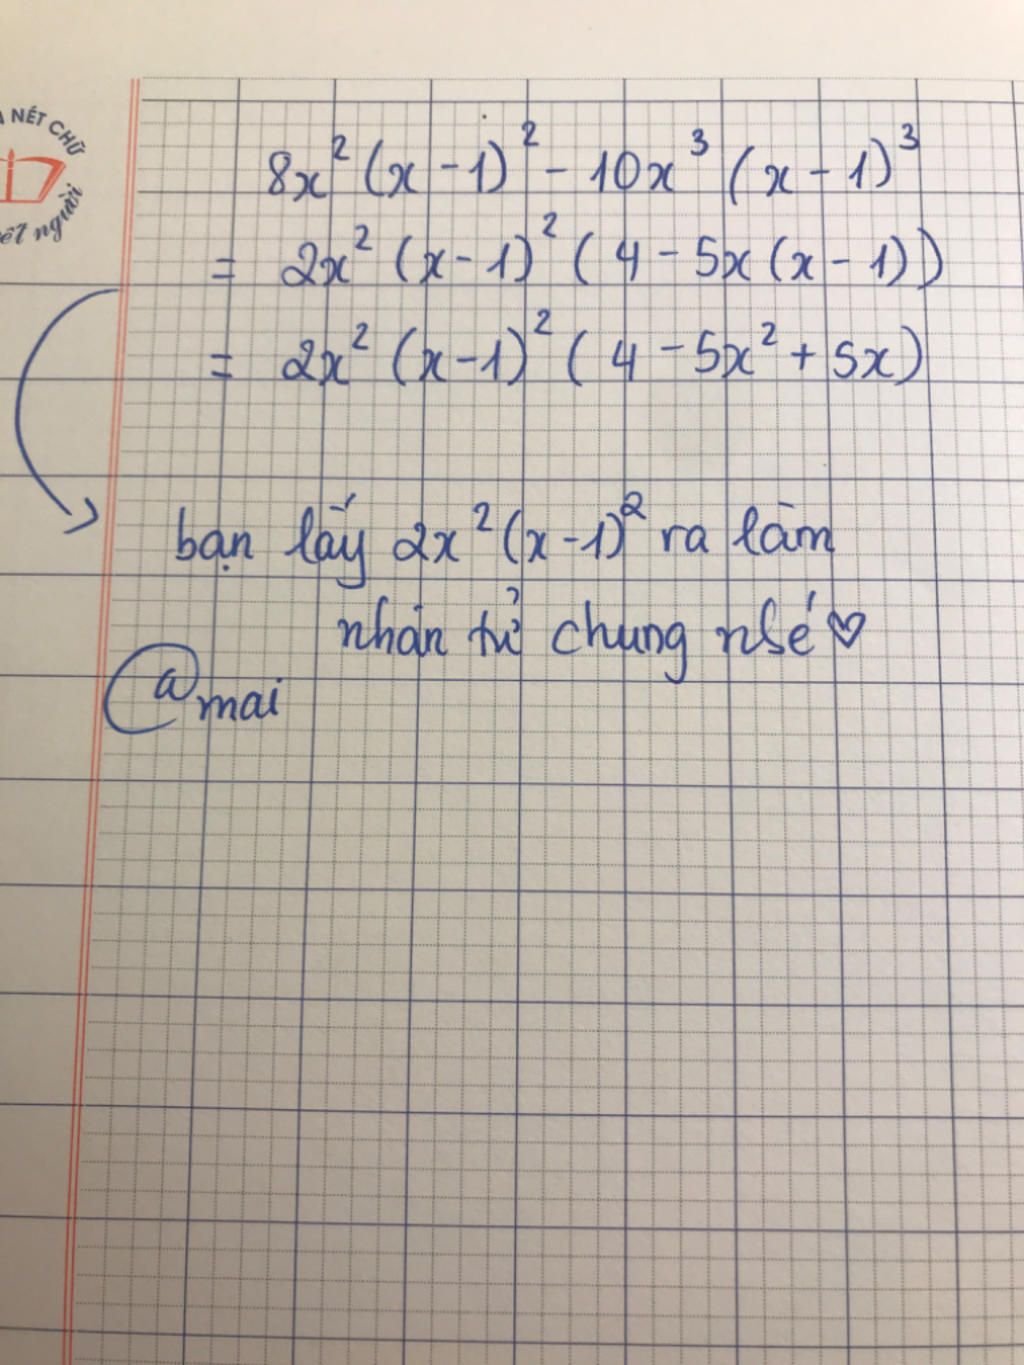 NÉT CHỮ
nết người
8x²(x-1)² - 10x³(x-1)³
= 2x²(x-1)²(4 - 5x(x-1))
= 2x²(x-1)²(4 - 5x² + 5x)
bạn lấy 2x²(x-1)² ra làm
nhân tử chung nhé ♡
@mai